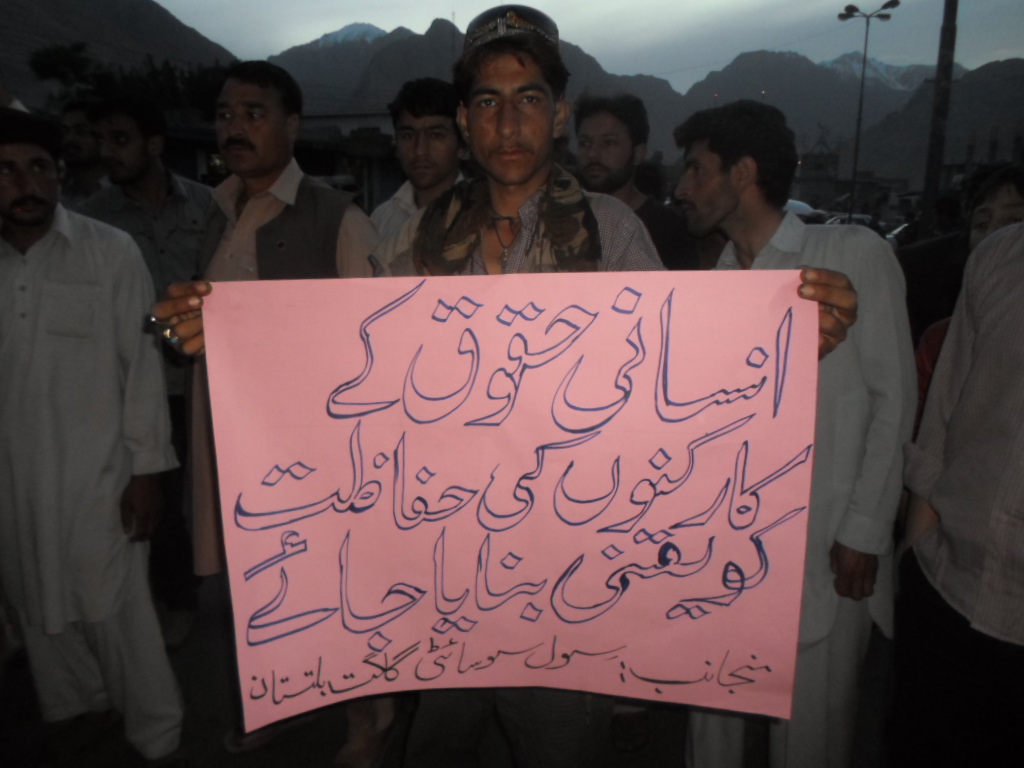 انسانی حقوق کے
کارکنوں کی حفاظت
کو یقینی بنایا جائے
منجانب: سول سوسائٹی گلگت بلتستان